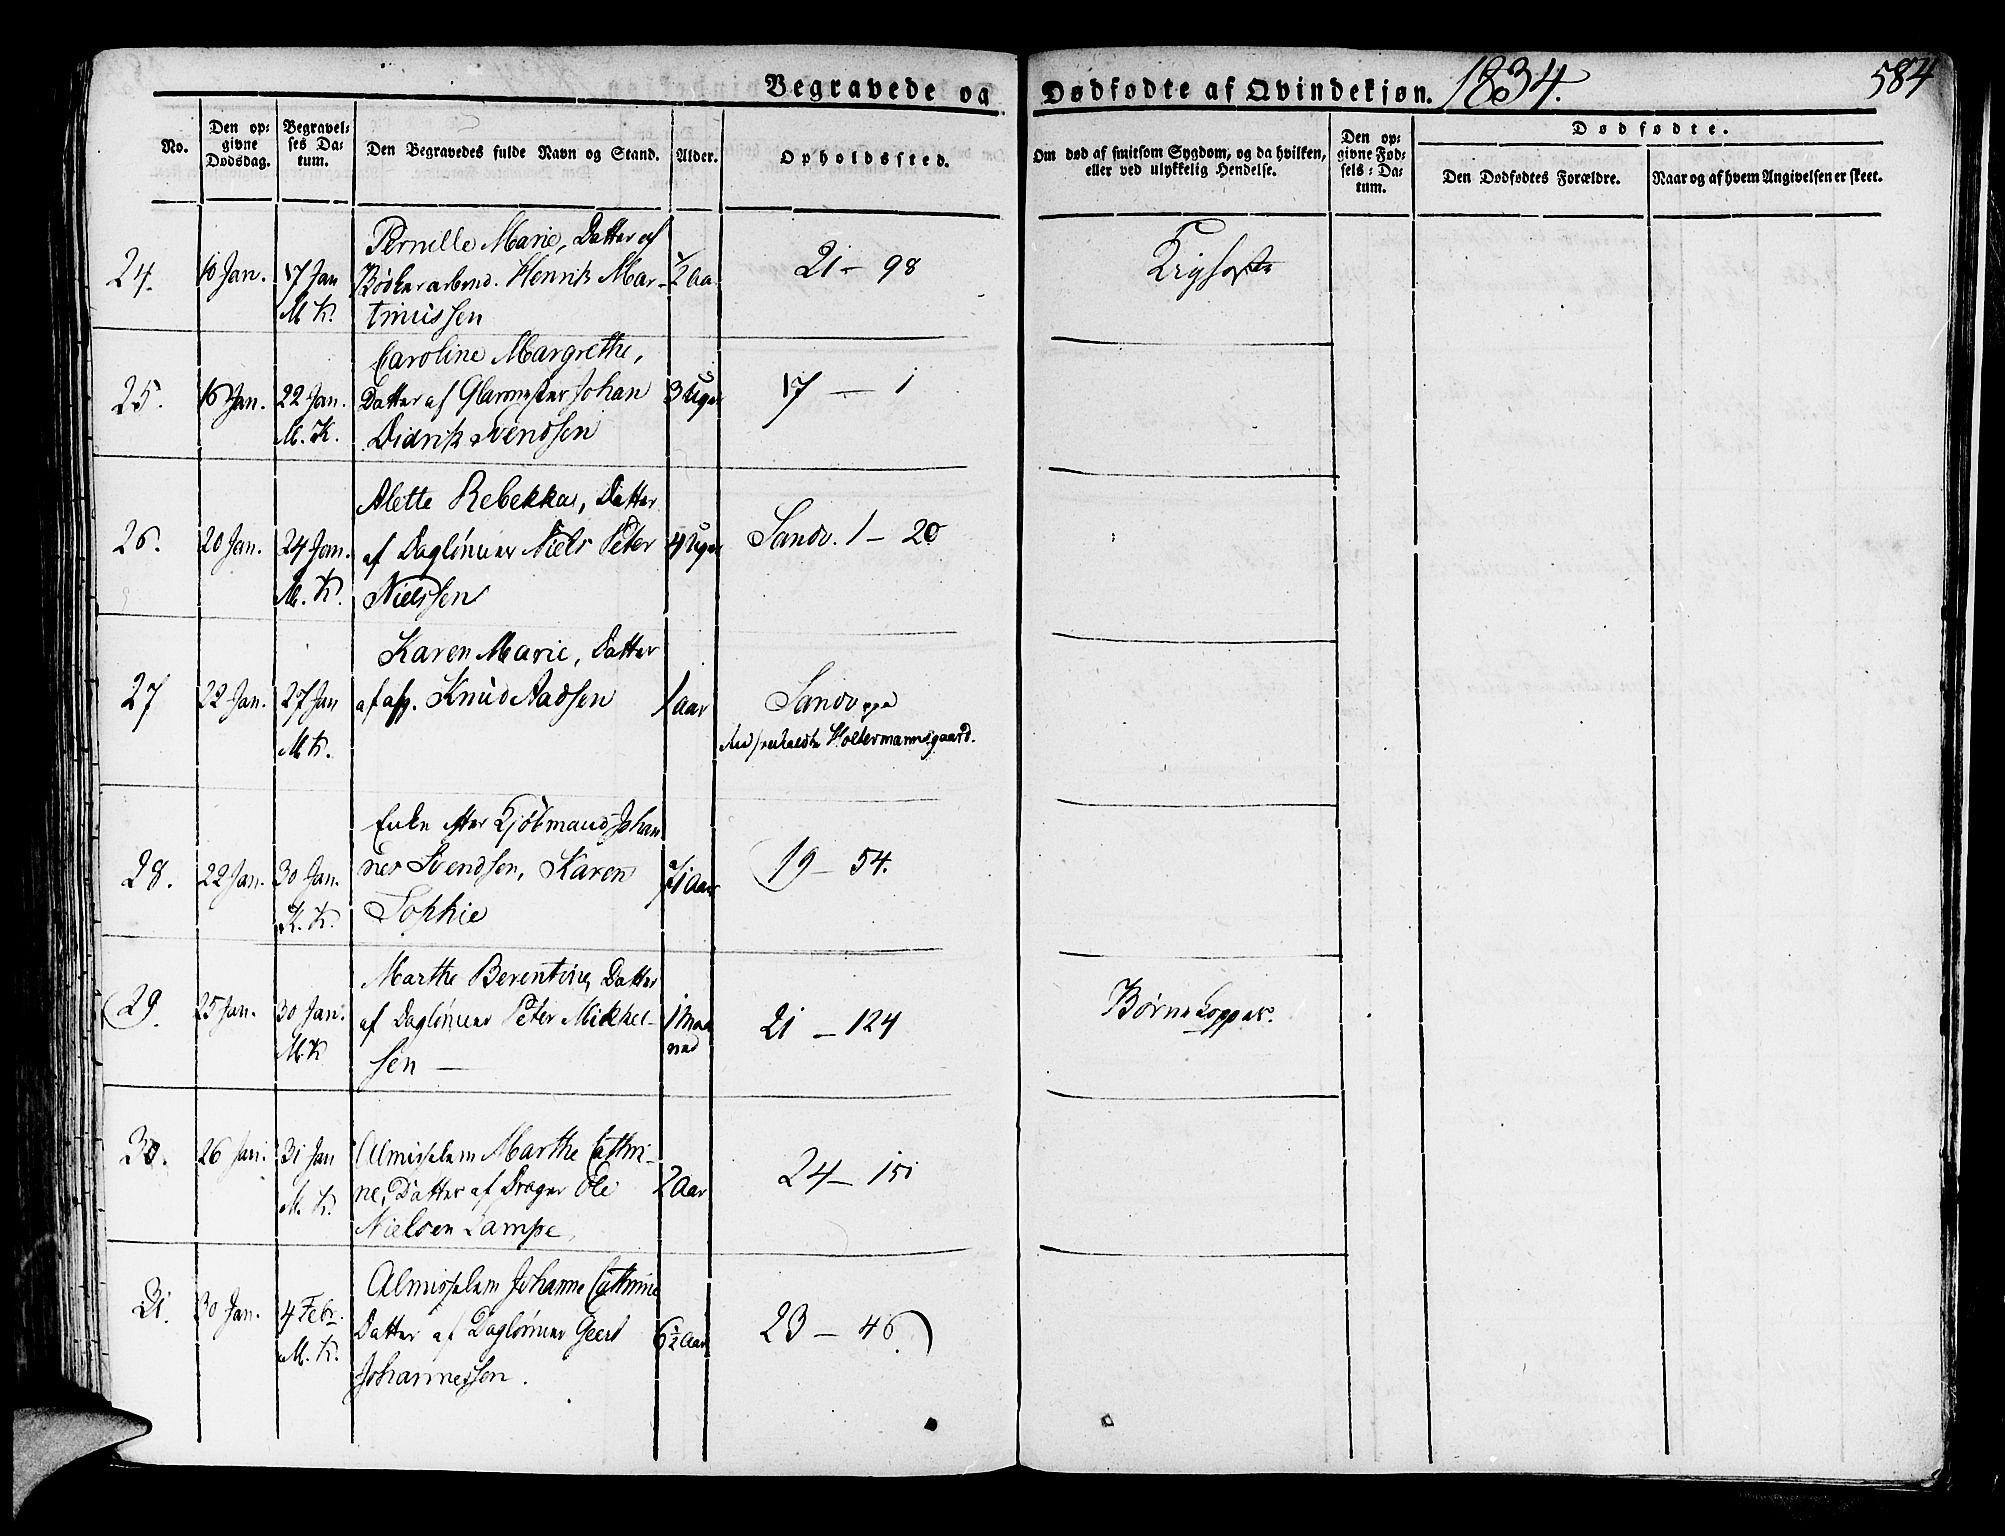 Begravede og Dødfødte af Qvindekjøn. 1834. 584
No.
Den op-
givne
Dødsdag.
Begravel-
ses Da-
tum.
Den Begravedes fulde Navn og Stand.
Alder.
Opholdssted.
Om død af smitsom Sygdom, og da hvilken,
eller ved ulykkelig Hendelse.
Den op-
givne Fød-
sels-Da-
tum.
Dødfødte.
Den Dødfødtes Forældre.
Naar og af hvem Angivelsen er skeet.
Pernille Marie, Datter af
24. 10 Jan. 17 Jan Bødkerarbmd. Henrik Mar- 1/2 Aa 21 - 98
M. K. tinussen
Caroline Margrethe,
25. 16 Jan. 22 Jan. Datter af Glarmester Johan 3 Uger 17 - 1
M. K. Didrik Svendsen
Alette Rebekka, Datter
26. 20 Jan. 24 Jan. af Daglønner Niels Peter 4 Uger Sandv. 1 - 20
M. K. Nielssen
Karen Marie, Datter
27 22 Jan. 27 Jan af afg. Knud Aadsen 1 Aar Sandv
M. K. Holtermannsgaard.
Enke efter Kjøbmand Johan
28. 22 Jan. 30 Jan. nes Svendsen, Karen Aar 19 - 54.
K. K. Sophie
Marthe Berentine, Datter
29. 25 Jan. 30 Jan. af Daglønner Peter Mikkel- 1 Maa 21 - 124 Børnekopper.
M. K. sen - ned
30. 26 Jan. 31 Jan Almisselem Marthe Cathri-
M. K. ne, Datter af Drager Ole 2 Aar 24 - 151
Nielsen Lampe,
Almisselem Johanne Cathrine
31. 30 Jan. 4 Febr. Datter af Daglønner Geert 6 1/2 Aar 23 - 46
M. K. Johannessen.